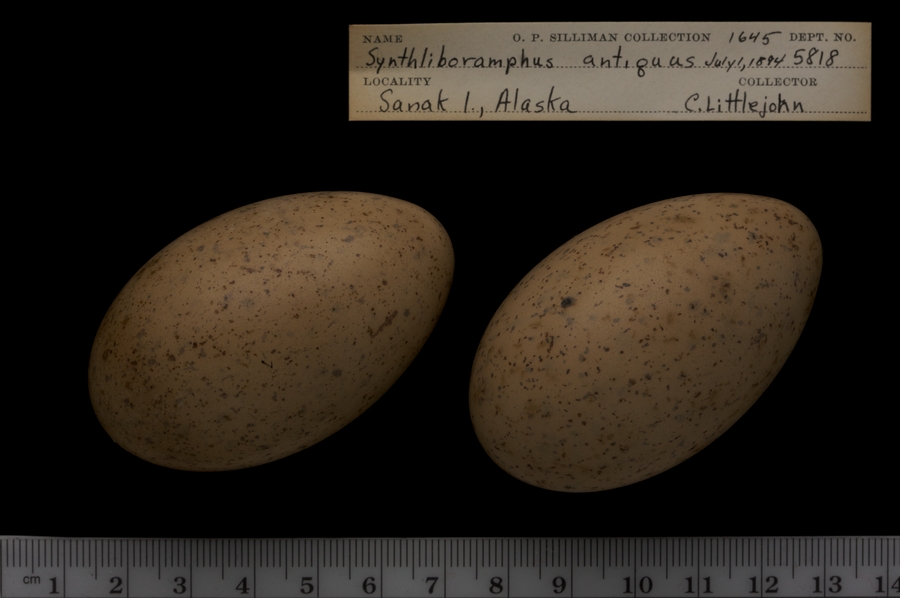 NAME O. P. SILLIMAN COLLECTION 1645 DEPT. NO.
Synthliboramphus antiquus July 1, 1894 5818
LOCALITY COLLECTOR
Sanak I., Alaska C. Littlejohn
cm 1 2 3 4 5 6 7 8 9 10 11 12 13 14